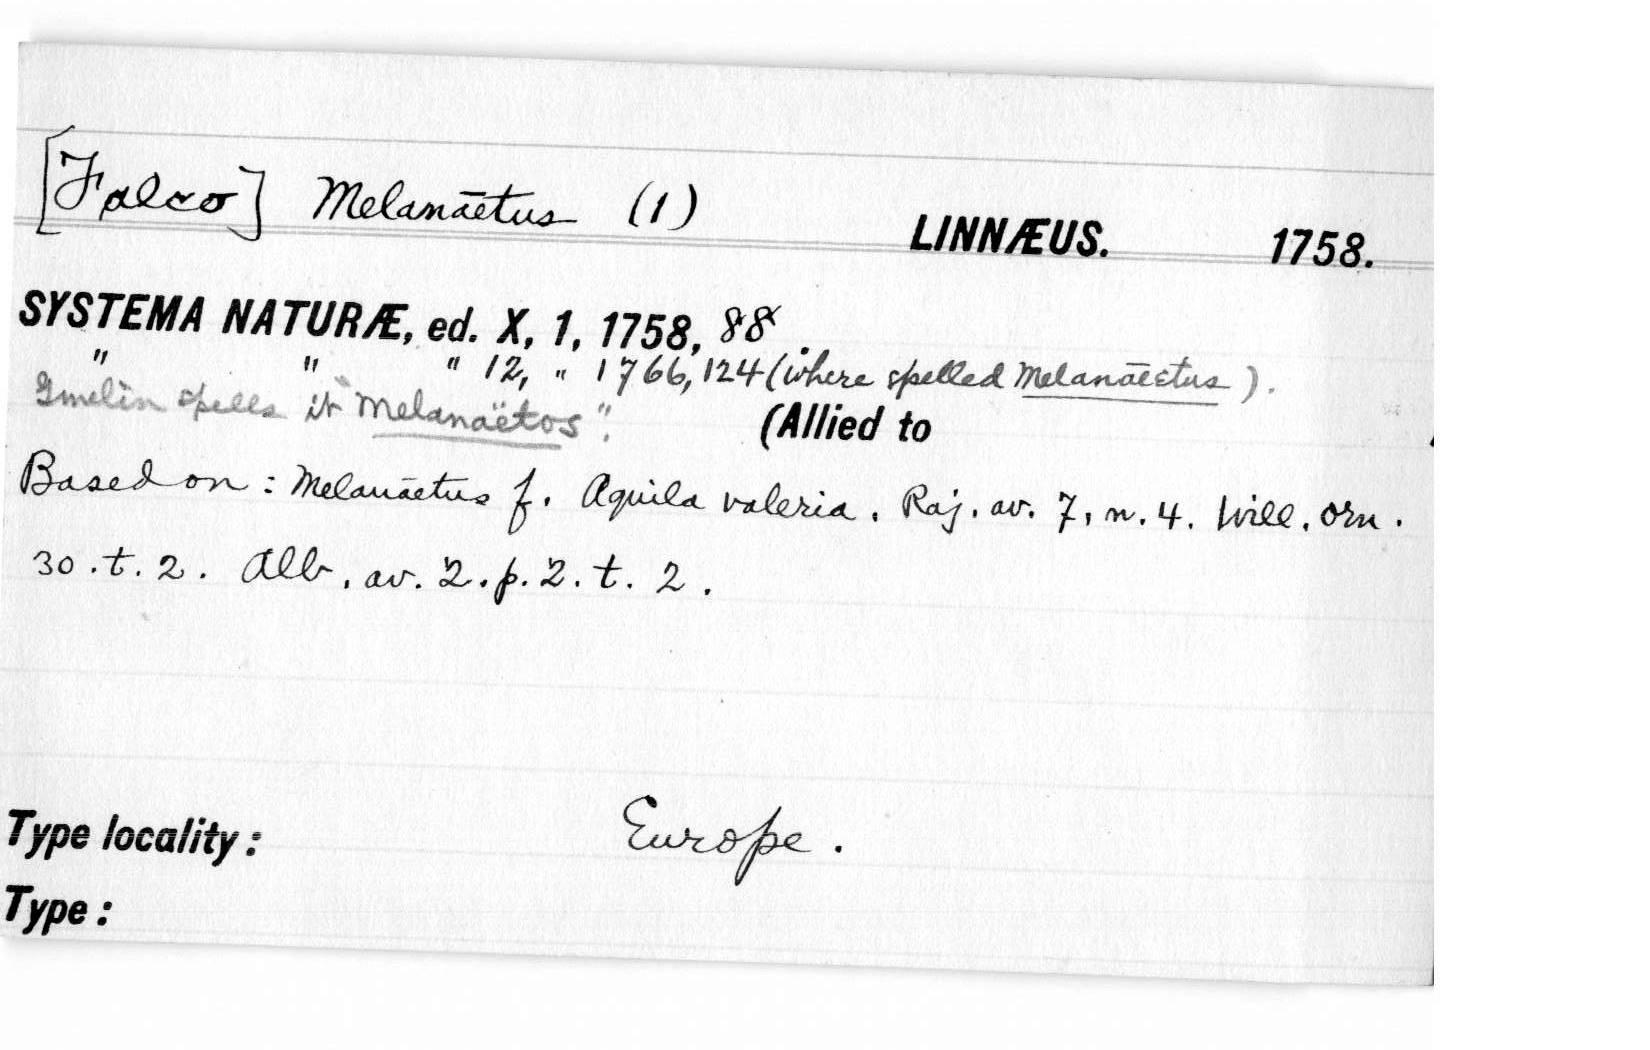 [Falco] Melanāetus (1) LINNÆUS. 1758.
SYSTEMA NATURÆ, ed. X, 1, 1758, 88.
" " " 12, " 1766, 124 (where spelled Melanāeetus).
Gmelin spells it "Melanaëtos".
(Allied to
Based on: Melanāetus f. Aquila valeria. Raj. av. 7, n. 4. Will. orn.
30. t. 2. Alb. av. 2. p. 2. t. 2.
Type locality: Europe.
Type: